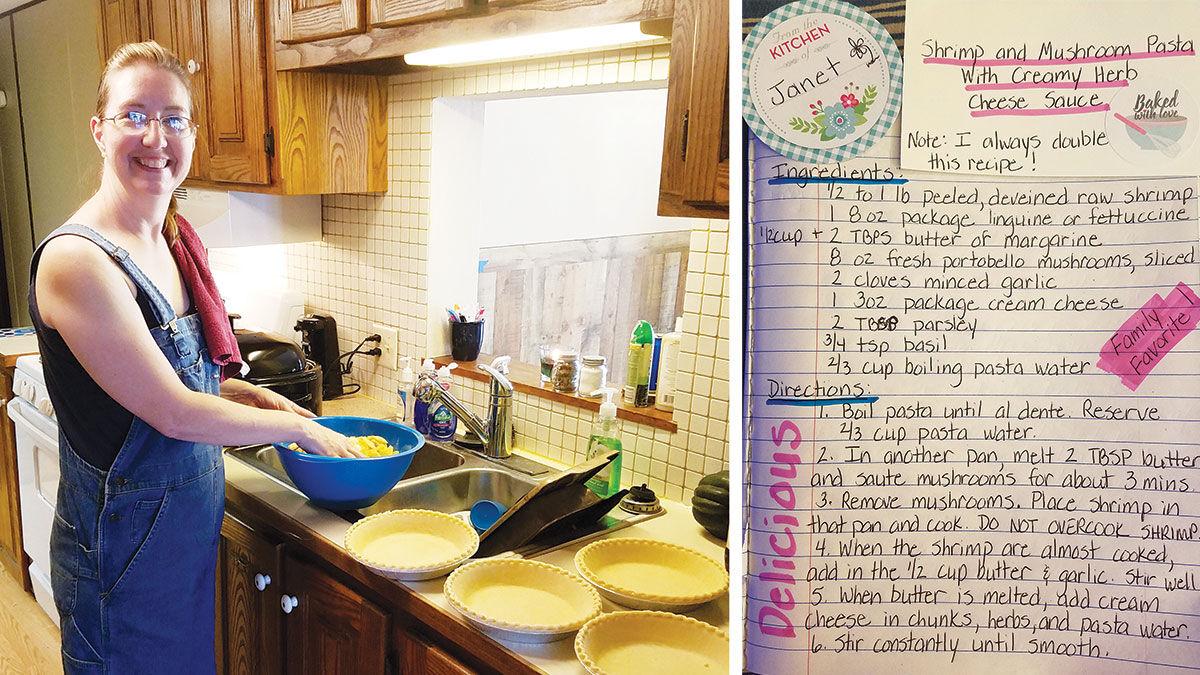 From the
KITCHEN
of
Janet
Shrimp and Mushroom Pasta
With Creamy Herb
Cheese Sauce
Baked
with love
Note: I always double
this recipe!
Ingredients:
1/2 to 1 lb peeled, deveined raw shrimp
1 8 oz package linguine or fettuccine
1/2 cup + 2 TBPS butter or margarine
8 oz fresh portobello mushrooms, sliced
2 cloves minced garlic
1 3oz package cream cheese
2 TBSP parsley
3/4 tsp basil
2/3 cup boiling pasta water
Family
Favorite
Directions:
1. Boil pasta until al dente. Reserve
2/3 cup pasta water.
2. In another pan, melt 2 TBSP butter
and saute mushrooms for about 3 mins.
3. Remove mushrooms. Place shrimp in
that pan and cook. DO NOT OVERCOOK SHRIMP.
4. When the shrimp are almost cooked,
add in the 1/2 cup butter & garlic. Stir well
5. When butter is melted, add cream
cheese in chunks, herbs, and pasta water.
6. Stir constantly until smooth.
Delicious